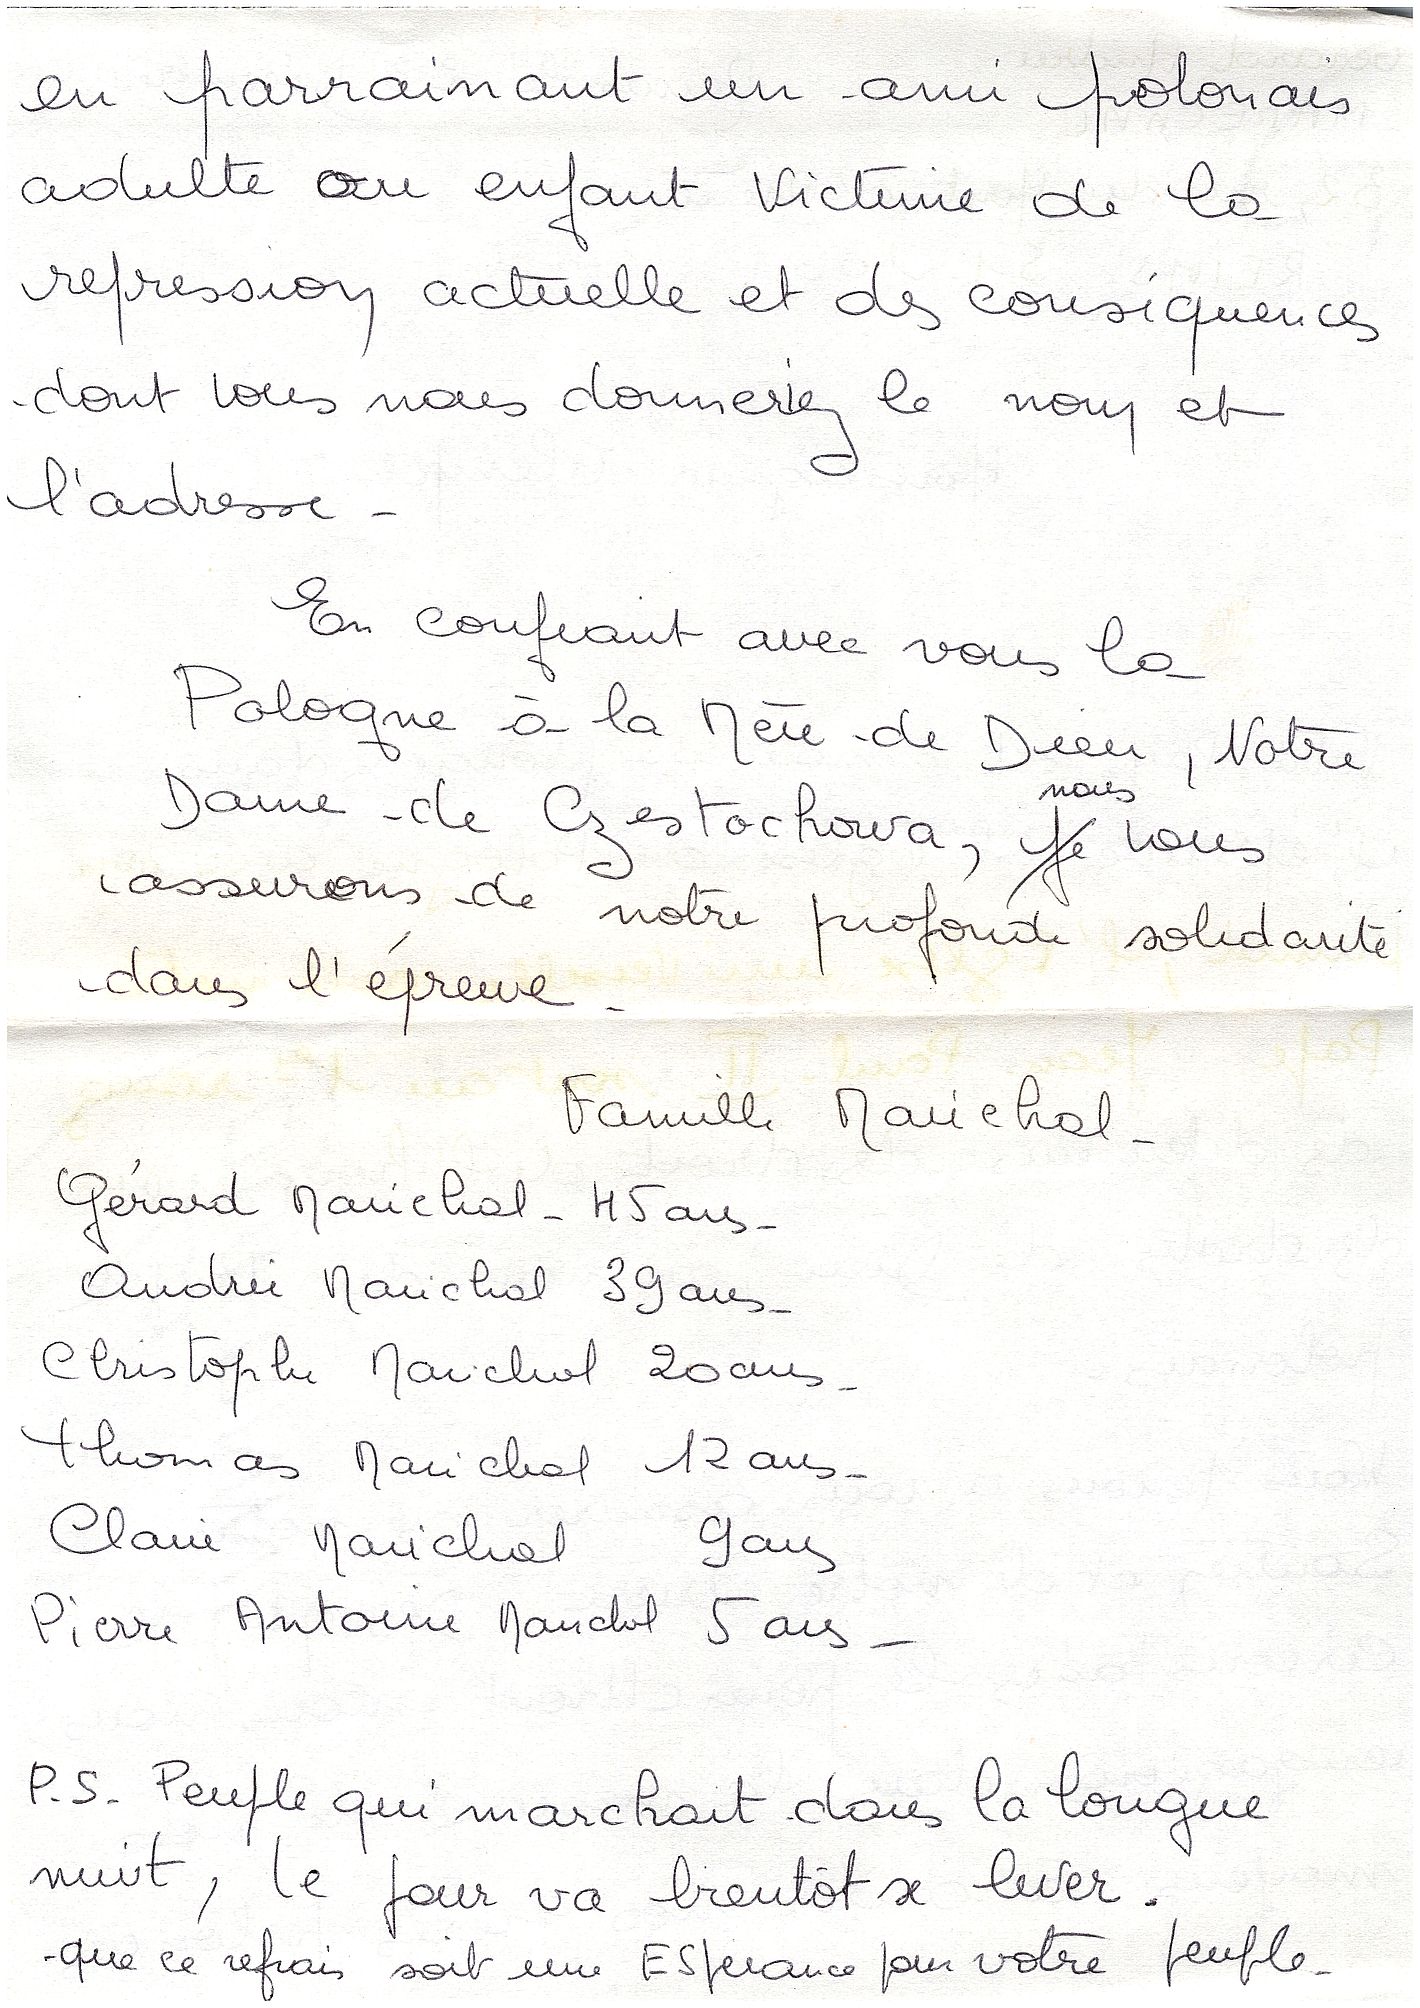 en parrainant un ami polonais
adulte ou enfant victime de la
repression actuelle et des conséquences
dont vous nous donneriez le nom et
l'adresse -
En confiant avec vous la
Pologne à la Mère de Dieu, Notre
Dame de Czestochowa, je nous vous
assurons de notre profonde solidarité
dans l'épreuve -
Famille Marichal -
Gérard Marichal - 45 ans -
Andrée Marichal 39 ans -
Christophe Marichal 20 ans -
Thomas Marichal 12 ans -
Claire Marichal 9 ans
Pierre Antoine Marichal 5 ans -
P.S. Peuple qui marchait dans la longue
nuit, le jour va bientôt se lever.
que ce refrain soit une ESpérance pour votre peuple -